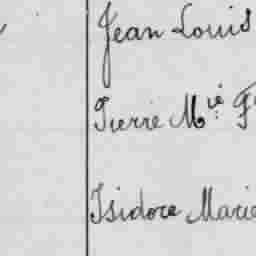 Jean Louis
Pierre M.ie F
Isidore Marie